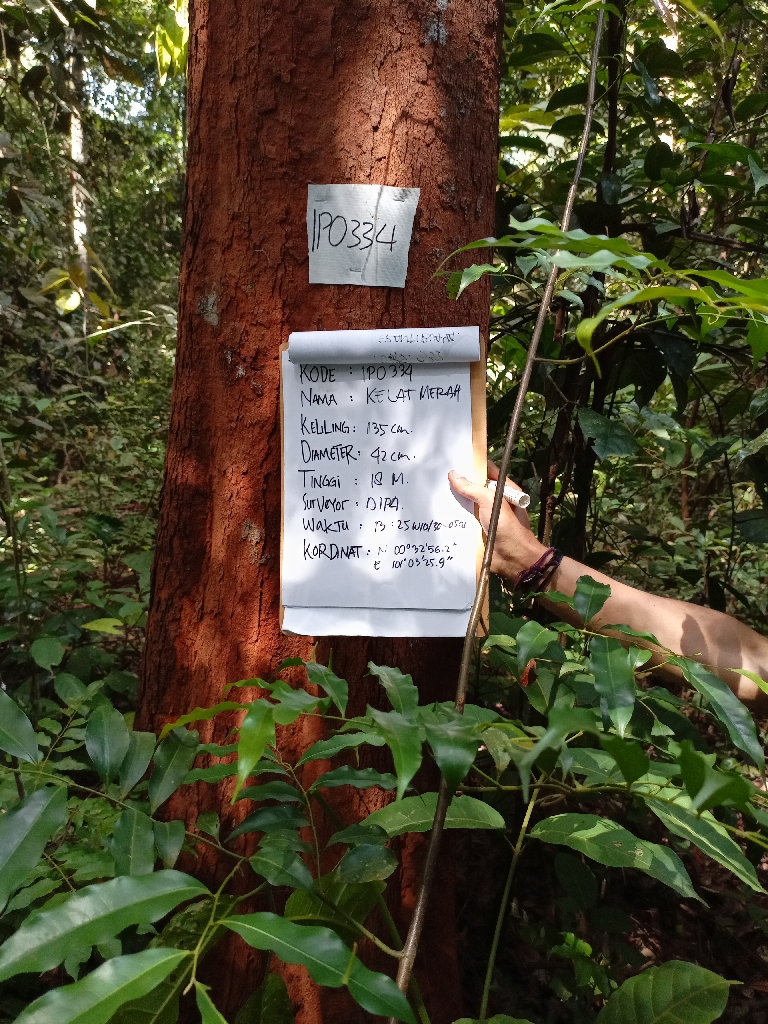 IPO334
KODE : IPO334
NAMA : KELAT MERAH
KELILING : 135 cm.
DIAMETER : 42 cm.
TINGGI : 18 M.
Surveyor : DIPA.
WAKTU : 13:25
KORDINAT : N 00°32'56.2"
E 101°03'25.9"